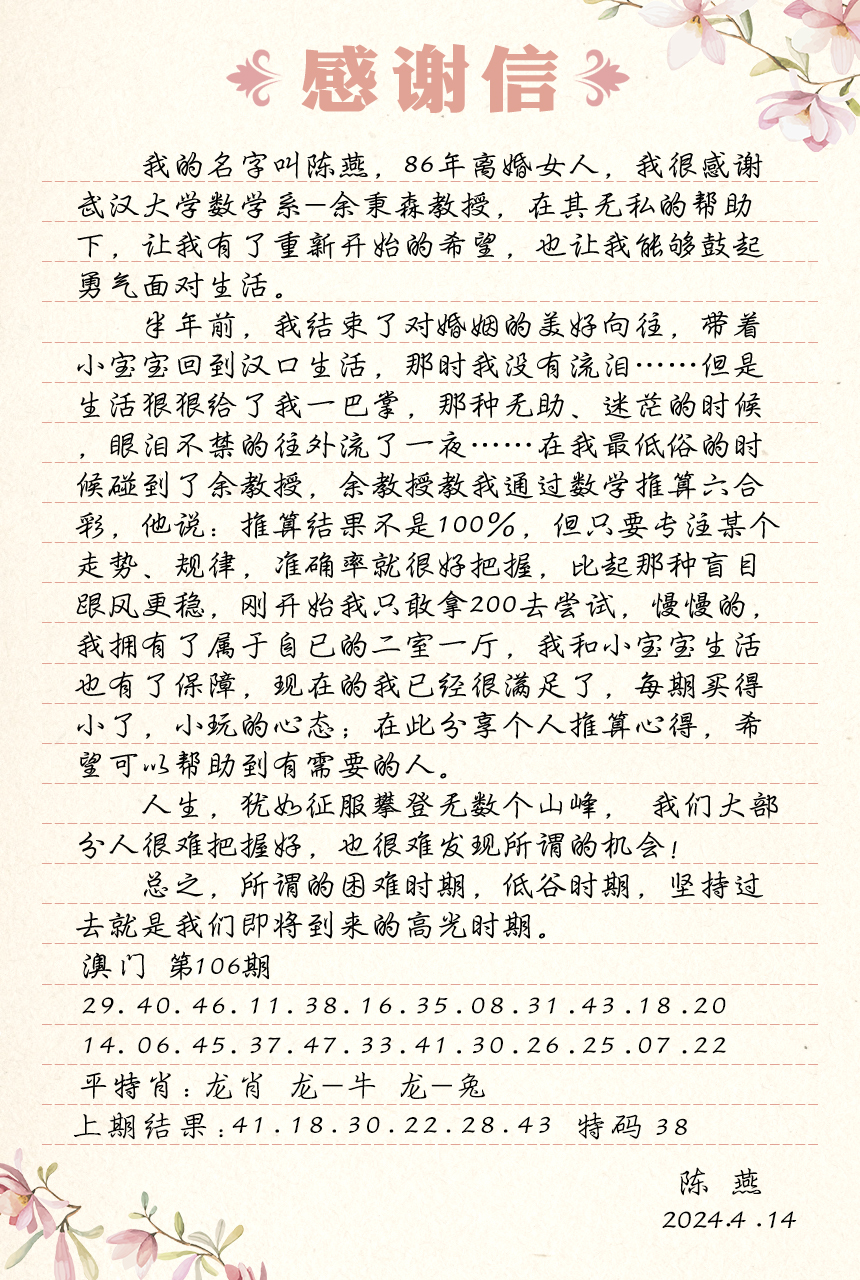 感谢信
我的名字叫陈燕，86年离婚女人，我很感谢
武汉大学数学系—余秉森教授，在其无私的帮助
下，让我有了重新开始的希望，也让我能够鼓起
勇气面对生活。
半年前，我结束了对婚姻的美好向往，带着
小宝宝回到汉口生活，那时我没有流泪……但是
生活狠狠给了我一巴掌，那种无助、迷茫的时候
，眼泪不禁的往外流了一夜……在我最低俗的时
候碰到了余教授，余教授教我通过数学推算六合
彩，他说：推算结果不是100%，但只要专注某个
走势、规律，准确率就很好把握，比起那种盲目
跟风更稳，刚开始我只敢拿200去尝试，慢慢的，
我拥有了属于自已的二室一厅，我和小宝宝生活
也有了保障，现在的我已经很满足了，每期买得
小了，小玩的心态；在此分享个人推算心得，希
望可以帮助到有需要的人。
人生，犹如征服攀登无数个山峰， 我们大部
分人很难把握好，也很难发现所谓的机会！
总之，所谓的困难时期，低谷时期，坚持过
去就是我们即将到来的高光时期。
澳门 第106期
29.40.46.11.38.16.35.08.31.43.18.20
14.06.45.37.47.33.41.30.26.25.07.22
平特肖：龙肖 龙—牛 龙—兔
上期结果：41.18.30.22.28.43 特码 38
陈 燕
2024.4.14